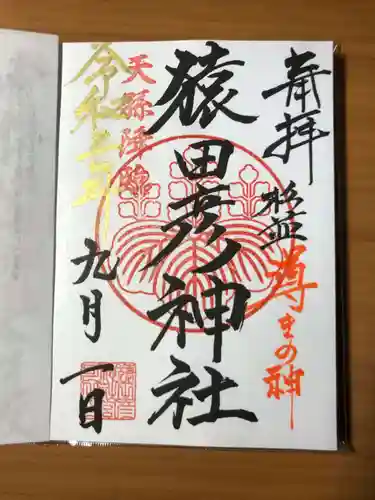 奉拝
杉並
導きの神
猿田彦神社
天孫降臨
令和二年
九月一日